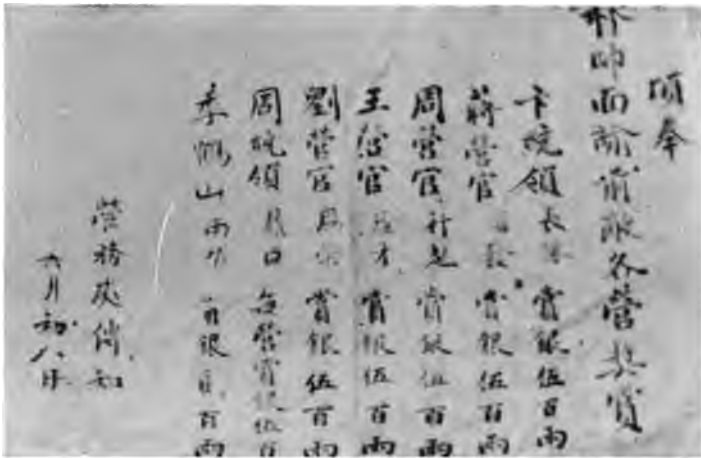 頃奉
帥面諭前敵各營獎賞
卞統領長勝賞銀伍百兩
蔣營官賞銀伍百兩
周營官行彪賞銀伍百兩
王營官賞銀伍百兩
劉營官賞銀伍百兩
周統領每營賞銀伍百
李鶴山兩營賞銀百兩
營務處傳知
六月初八日